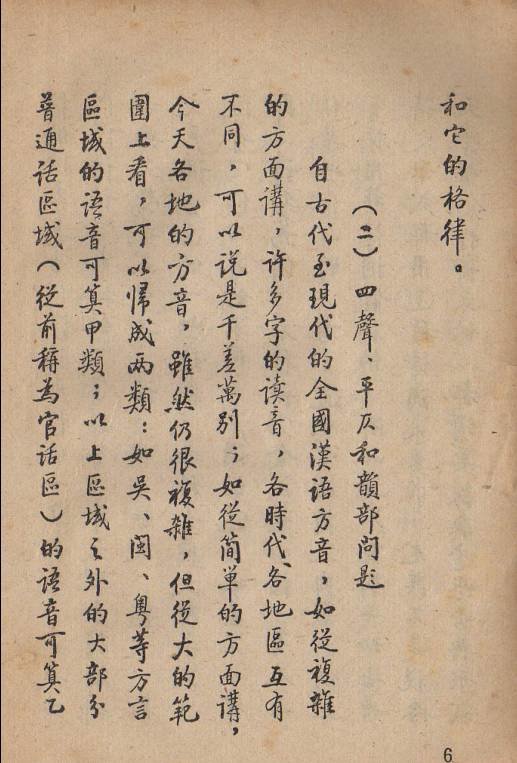 和它的格律。
(二)四聲、平仄和韻部問題
自古代至現代的全國漢語方音,如從複雜
的方面講,許多字的读音,各時代、各地區互有
不同,可以说是千差萬别;如從简單的方面講,
今天各地的方音,雖然仍很複雜,但從大的範
圍上看,可以歸成两類:如吴、闽、粤等方言
區域的语音可算甲類;以上區域之外的大部分
普通话區域(從前稱為官话區)的語音可算乙
6